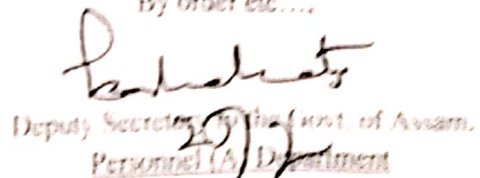 By order etc....,
Deputy Secretary to the Govt. of Assam,
Personnel (A) Department